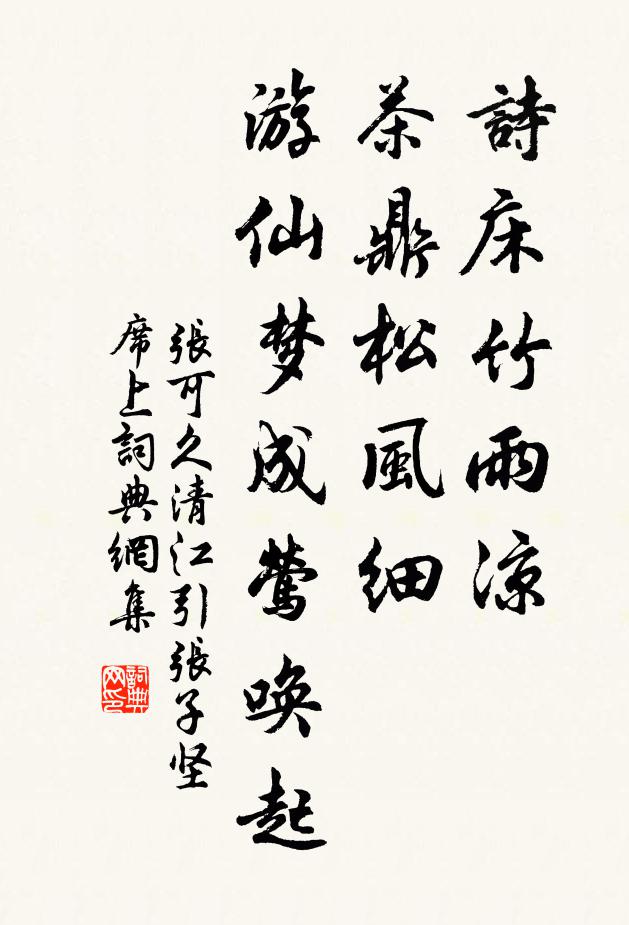 詩床竹雨涼
茶鼎松風細
游仙梦成莺唤起
張可久清江引張子坚
席上詞典網集
詞典网印